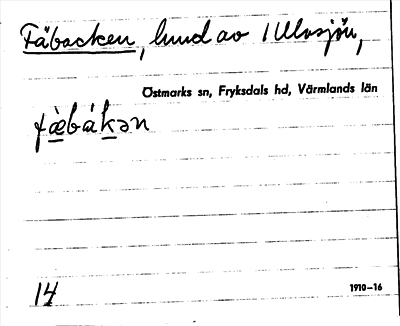 Fäbacken, lund av 1 Ulvsjön,
Östmarks sn, Fryksdals hd, Värmlands län
fæ̀bákən
14
1910-16